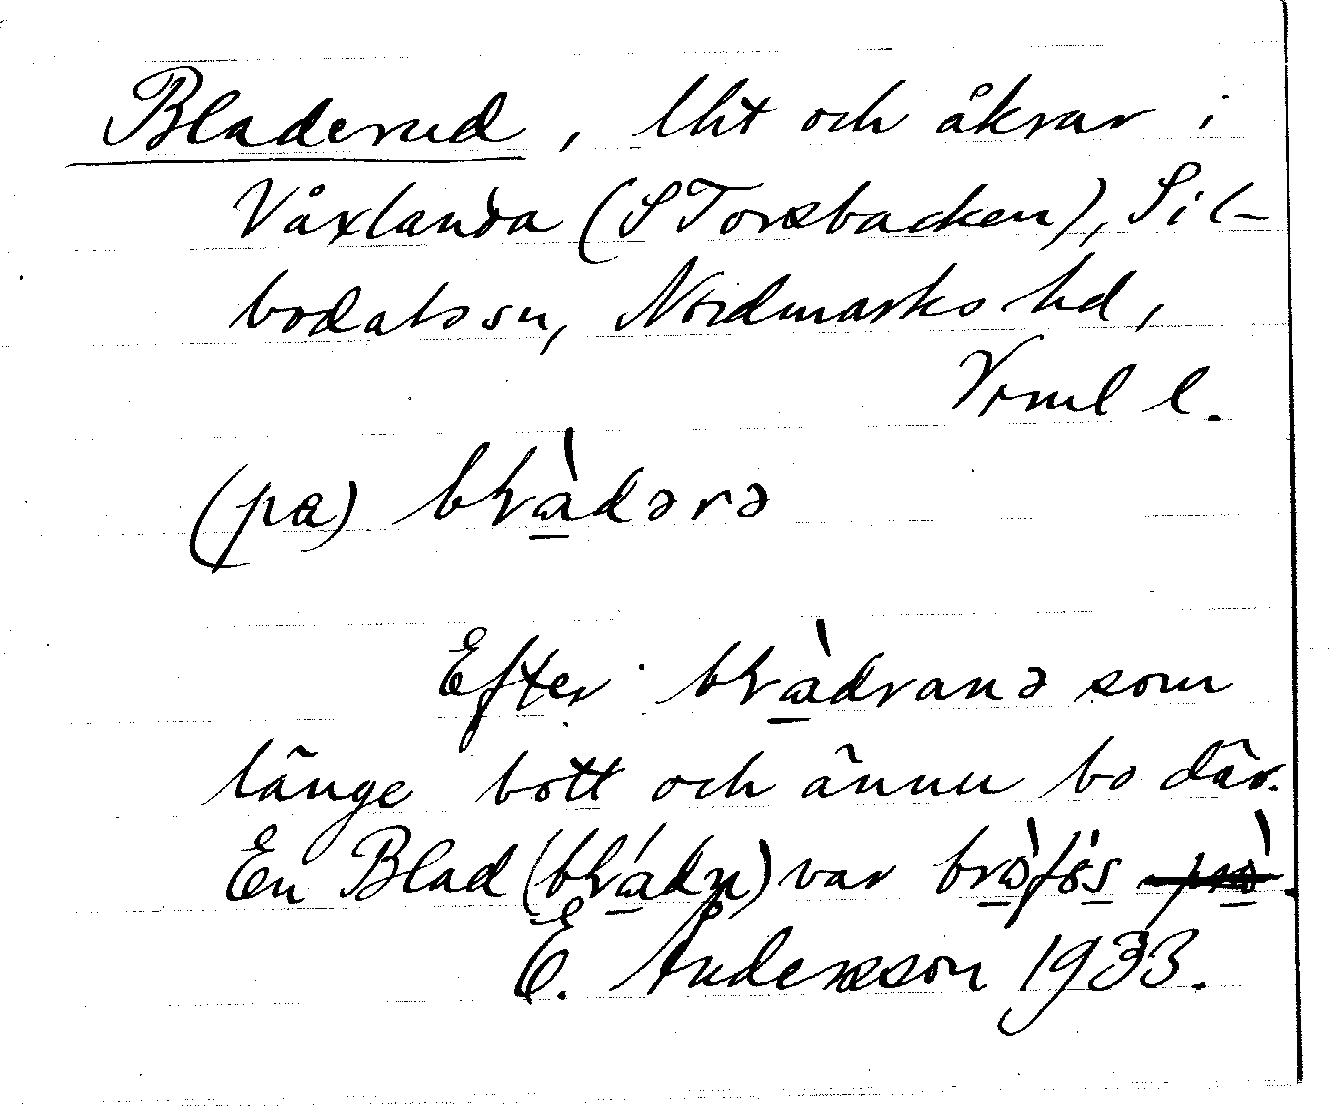 Bladerud, lht och åkrar i
Våxlanda (S Torsbacken), Sil-
bodalssn, Nordmarks hd,
Vrml l.
(pa) bḷàdərə
Efter bḷàdranə som
länge bott och ännu bo där.
En Blad (bḷádn̥) var
E. Andersson 1933.